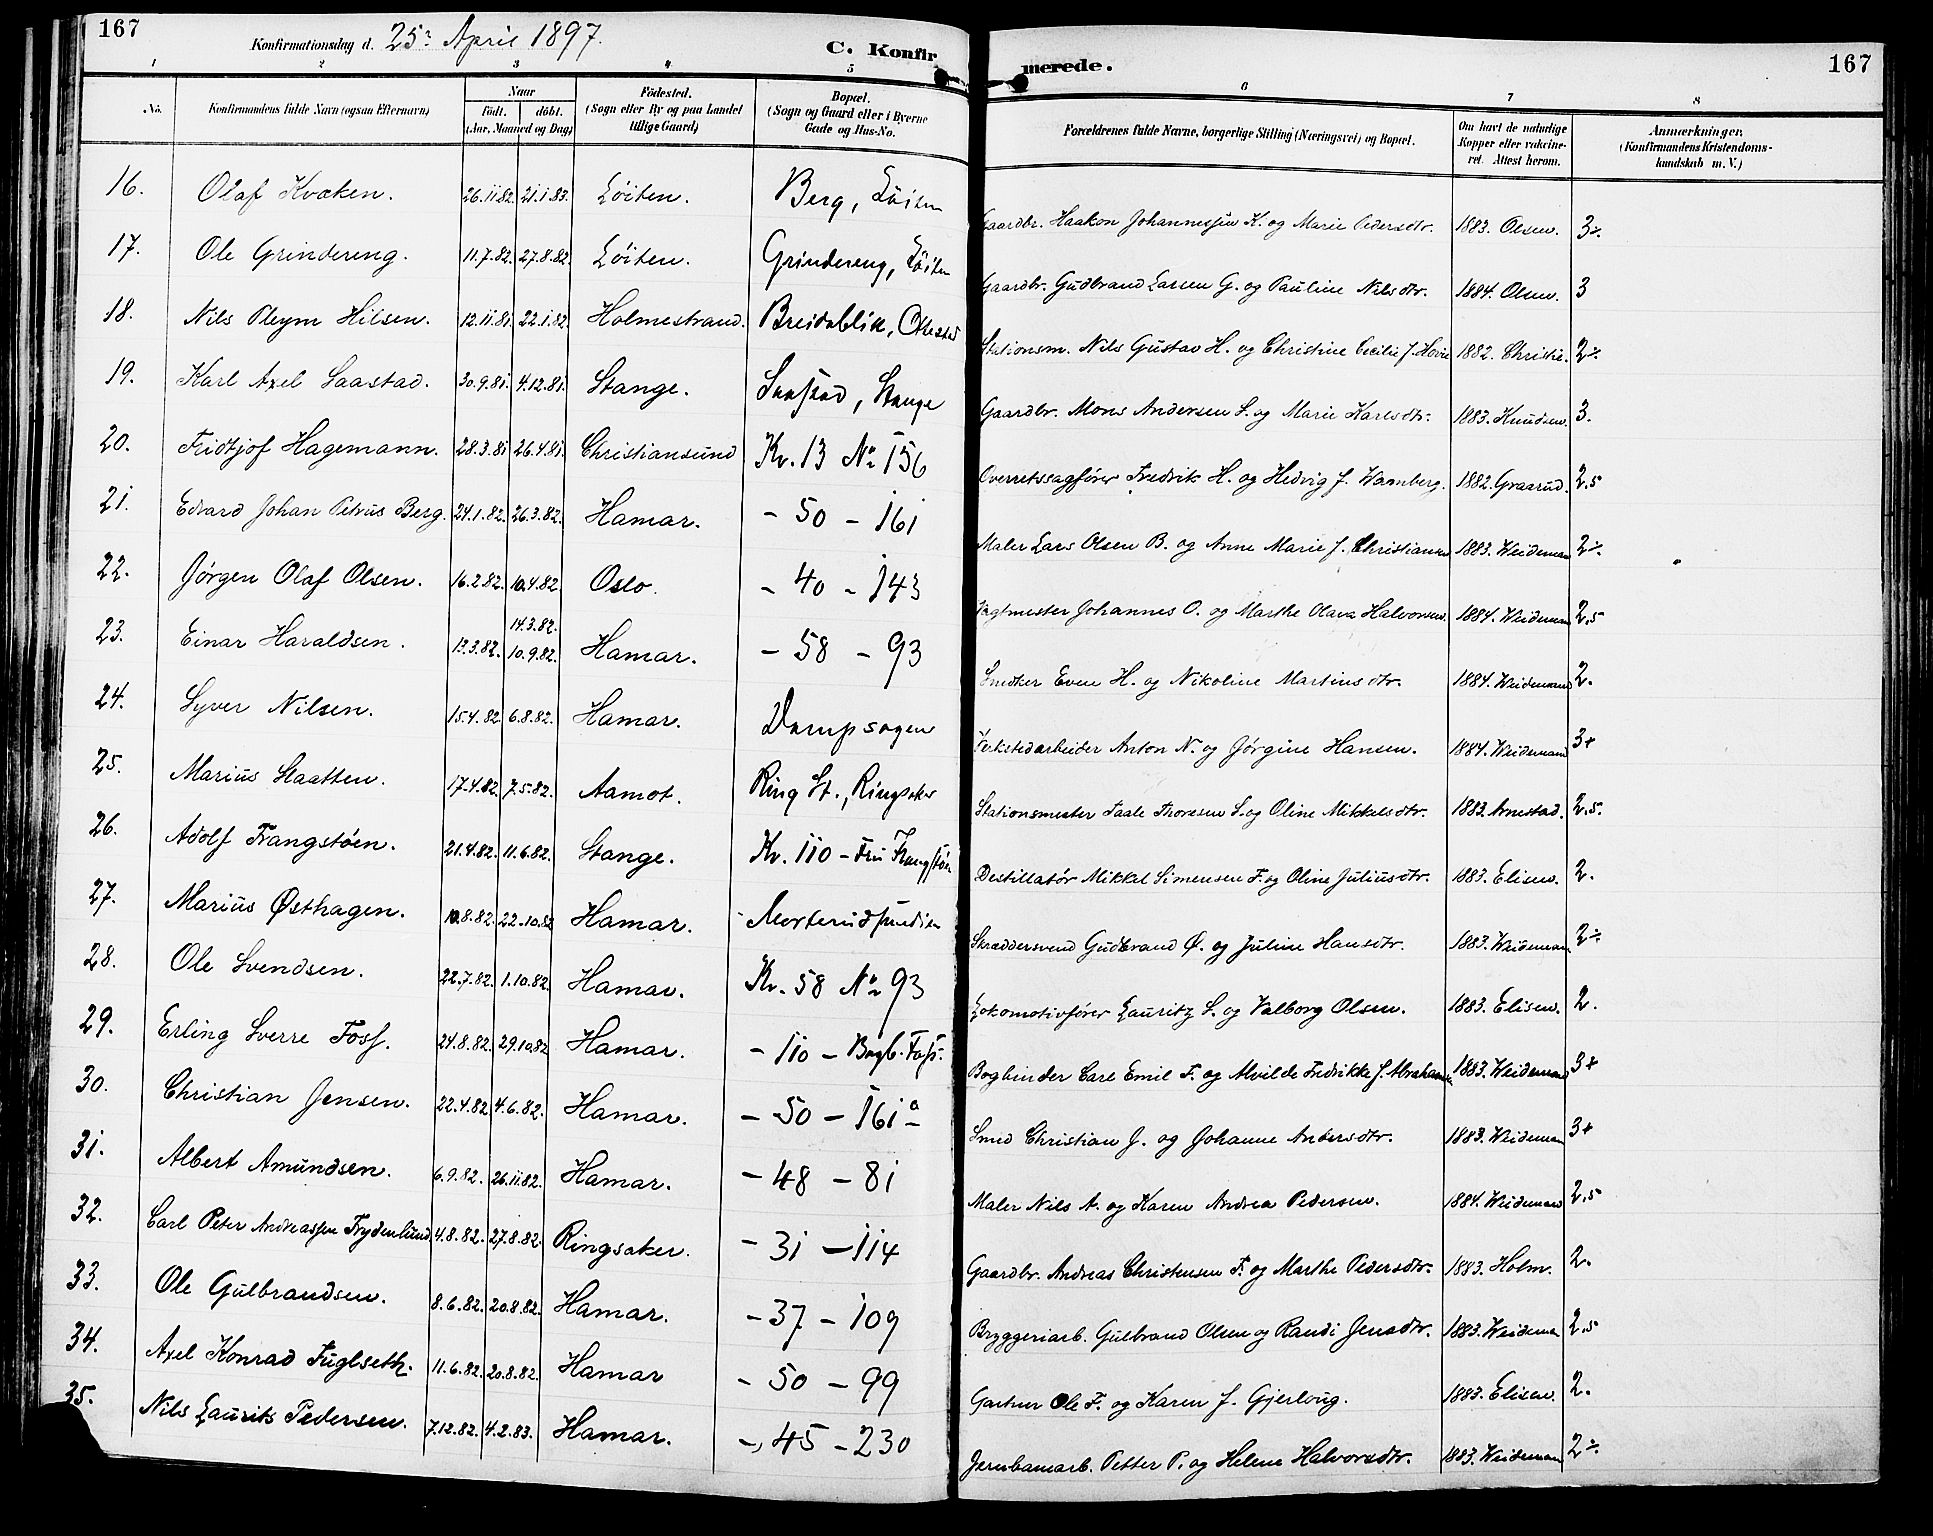 167
Konfirmationsdag d. 25. April 1897.
C. Konfirmerede.
167
1 2 3 4 5 6 7 8
No. Konfirmandens fulde Navn (ogsaa Efternavn) Naar Födt. döbt. (Aar, Maaned og Dag) Födested. (Sogn eller By og paa Landet tillige Gaard) Bopæl. (Sogn og Gaard eller i Byerne Gade og Hus-No. Forældrenes fulde Navne, borgerlige Stilling (Næringsvei) og Bopæl. Om havt de naturlige Kopper eller vakcineret. Attest herom. Anmærkninger. (Konfirmandens Kristendomskundskab m. V.)
16. Olaf Kvæken. 26.11.82. 21.1.83. Löiten. Berg, Löiten Gaardbr. Haakon Johannessen K. og Marie Pedersdtr. 1883. Olsen. 3÷.
17. Ole Grindereng. 11.7.82. 27.8.82. Löiten. Grindereng, Löiten Gaardbr. Gudbrand Larsen G. og Pauline Nilsdtr. 1884. Olsen. 3
18. Nils Pleym Hilsen. 12.11.81. 22.1.82. Holmestrand. Breidablik, Ottestad Stationsm. Nils Gustav H. og Christine Cecilie f. Hovie 1882. Christie. 2÷
19. Karl Axel Saastad. 30.9.81. 4.12.81. Stange. Saastad, Stange Gaardbr. Mons Andersen S. og Marie Karlsdtr. 1883. Knudsen. 3.
20. Fridtjof Hagemann. 28.3.81 26.4.81. Christiansund Kv. 13 No 156 Overretssagfører Fredrik H. og Hedvig f. Wamberg. 1882. Graarud. 2,5
21. Edvard Johan Petrus Berg. 24.1.82. 26.3.82. Hamar. - 50 - 161 Maler Lars Olsen B. og Anne Marie f. Christiansen 1883. Weideman 2÷.
22. Jørgen Olaf Olsen. 16.2.82. 10.4.82. Oslo. - 40 - 143 Vagtmester Johannes O. og Marthe Olava Halvorsen. 1884. Weideman 2,5
23. Einar Haraldsen. 13.3.82. 14.3.82. 10.9.82. Hamar. - 58 - 93 Snedker Even H. og Nikoline Martinsdtr. 1884. Weidemand 2.
24. Syver Nilsen. 15.4.82. 6.8.82. Hamar. Dampsagen Verkstedarbeider Anton N. og Jørgine Hansen. 1884. Weidemand 3+
25. Marius Staatten. 17.4.82. 7.5.82. Aamot. Ring St., Ringsaker Stationsmester Taale Thoresen S. og Oline Mikkelsdtr. 1883. Arnestad. 2,5.
26. Adolf Frangstöen. 21.4.82. 11.6.82. Stange. Kv. 110 - Fru Frangstöen Destillatör Mikkel Simensen F. og Oline Juliusdtr. 1883. Elisen. 2.
27. Marius Østhagen. 10.8.82. 22.10.82 Hamar. Skræddersvend Gudbrand Ø. og Juline Hansdtr. 1883. Weideman 2÷
28. Ole Svendsen. 22.7.82. 1.10.82. Hamar. Kv. 58 No 93 Lokomotivfører Lauritz S. og Valborg Olsen. 1883. Elisen. 2.
29. Erling Sverre Foss. 24.8.82. 29.10.82 Hamar. - 110 - Bogb. Foss. Bogbinder Carl Emil F. og Alvilde Fredrikke f. Abrahamsen 1883. Weidemand 3+
30. Christian Jensen. 22.4.82 4.6.82. Hamar. - 50 - 161 a Smed Christian J. og Johanne Andersdtr. 1883. Weideman 3+
31. Albert Amundsen. 6.9.82. 26.11.82. Hamar. - 48 - 81 Maler Nils A. og Karen Andrea Pedersen. 1884. Weidemand 2,5
32. Carl Peter Andreassen Frydenlund 4.8.82. 27.8.82. Ringsaker. - 31 - 114 Gaardbr. Andreas Christensen F. og Marthe Pedersdtr. 1883. Holm. 2.
33. Ole Gulbrandsen. 8.6.82. 20.8.82. Hamar. - 37 - 109 Bryggeriarb. Gulbrand Olsen og Randi Jensdtr. 1883. Weideman 2,5
34. Axel Konrad Fuglseth. 11.6.82. 20.8.82. Hamar - 50 - 99 Gartner Ole F. og Karen f. Gjerloug. 1883. Elisen. 2.
35. Nils Laurits Pedersen. 7.12.82. 4.2.83. Hamar. - 45 - 230 Jernbanearb. Petter P. og Helene Halvorsdtr. 1883. Weideman 2÷.